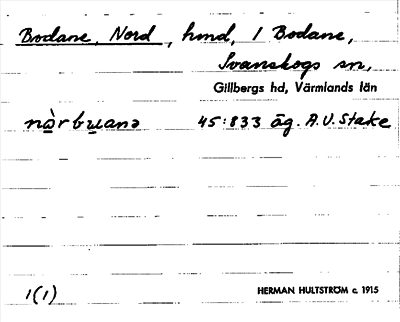 Bodane, Nord, hmd, 1 Bodane,
Svanskogs sn,
Gillbergs hd, Värmlands län
nòrbuanə 45:833 äg. A.V. Stake
1(1) HERMAN HULTSTRÖM c. 1915